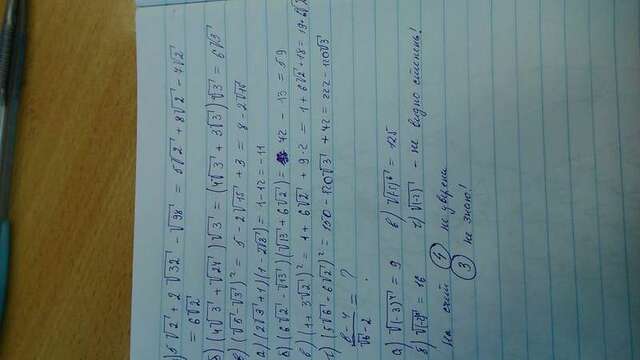 а) 5√2 + 2√32 - √98 = 5√2 + 8√2 - 7√2
= 6√2
б) (4√3 + √24)√3 = (4√3 + 3√3)√3 = 6√3
в) (√5 - √3)² = 5 - 2√15 + 3 = 8 - 2√15
а) (2√3 + 1)(1 - 2√3) = 1 - 12 = -11
б) (6√2 - √13)(√13 + 6√2) = 72 - 13 = 59
в) (1 + 3√2)² = 1 + 6√2 + 9·2 = 1 + 6√2 + 18 = 19 + 6√2
г) (5√6 - 6√2)² = 150 - 120√3 + 72 = 222 - 120√3
(в - 4)/(√в - 2) = ?
а) √(-3)⁴ = 9 в) √(-5)⁶ = 125
б) √(-2)⁸ = 16 г) √(-2) - не видно степень!
На счёт 4 не уверена
3 не знаю!